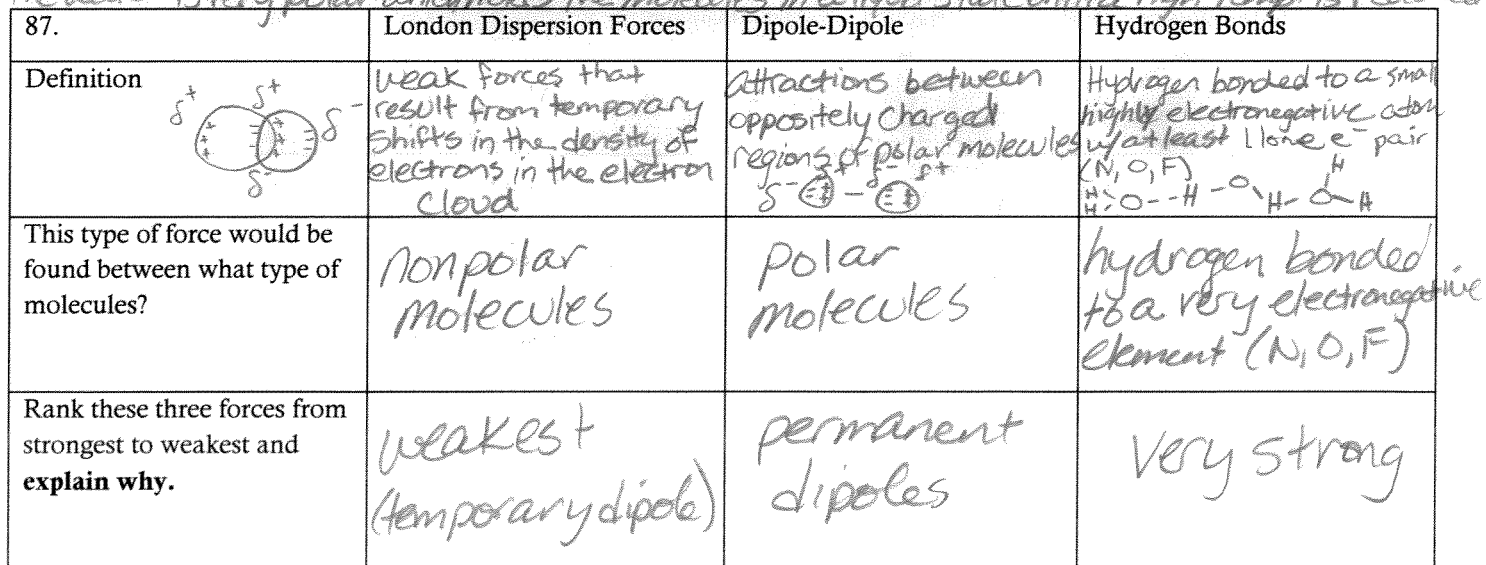 is very polar which makes the molecules in a liquid state until a high temp. is reached
87.
London Dispersion Forces
Dipole-Dipole
Hydrogen Bonds
Definition
δ+
δ+
δ-
δ-
weak forces that
result from temporary
shifts in the density of
electrons in the electron
cloud
attractions between
oppositely charged
regions of polar molecules
δ- δ+ δ- δ+
Hydrogen bonded to a small
highly electronegative atom
w/at least 1 lone e- pair
(N, O, F)
H
H O--H -O H- O H
H
This type of force would be
found between what type of
molecules?
nonpolar
molecules
polar
molecules
hydrogen bonded
to a very electronegative
element (N, O, F)
Rank these three forces from
strongest to weakest and
explain why.
weakest
(temporary dipole)
permanent
dipoles
very strong